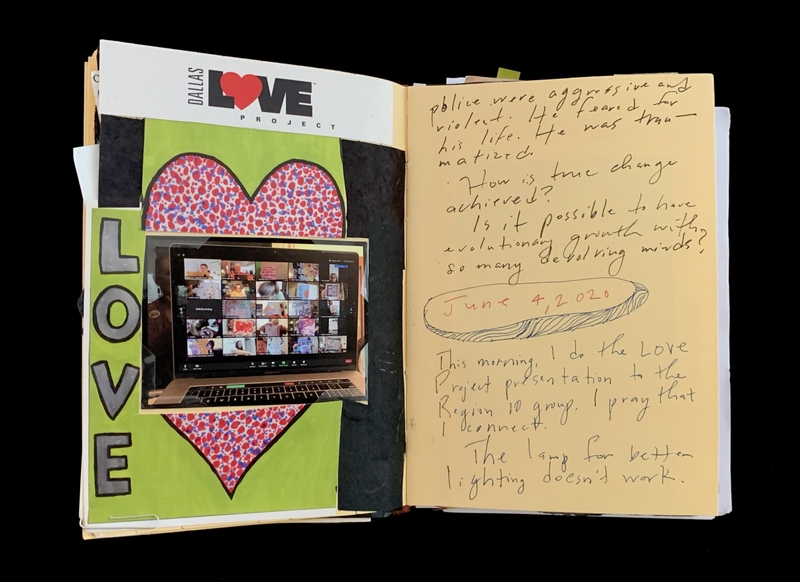 DALLAS
LOVE
PROJECT
LOVE
police were aggressive and
violent. He feared for
his life. He was trau-
matized.
· How is true change
achieved?
Is it possible to have
evolutionary growth with
so many devolving minds?
June 4, 2020
This morning, I do the LOVE
Project presentation to the
Region 10 group. I pray that
I connect.
The lamp for better
lighting doesn't work.